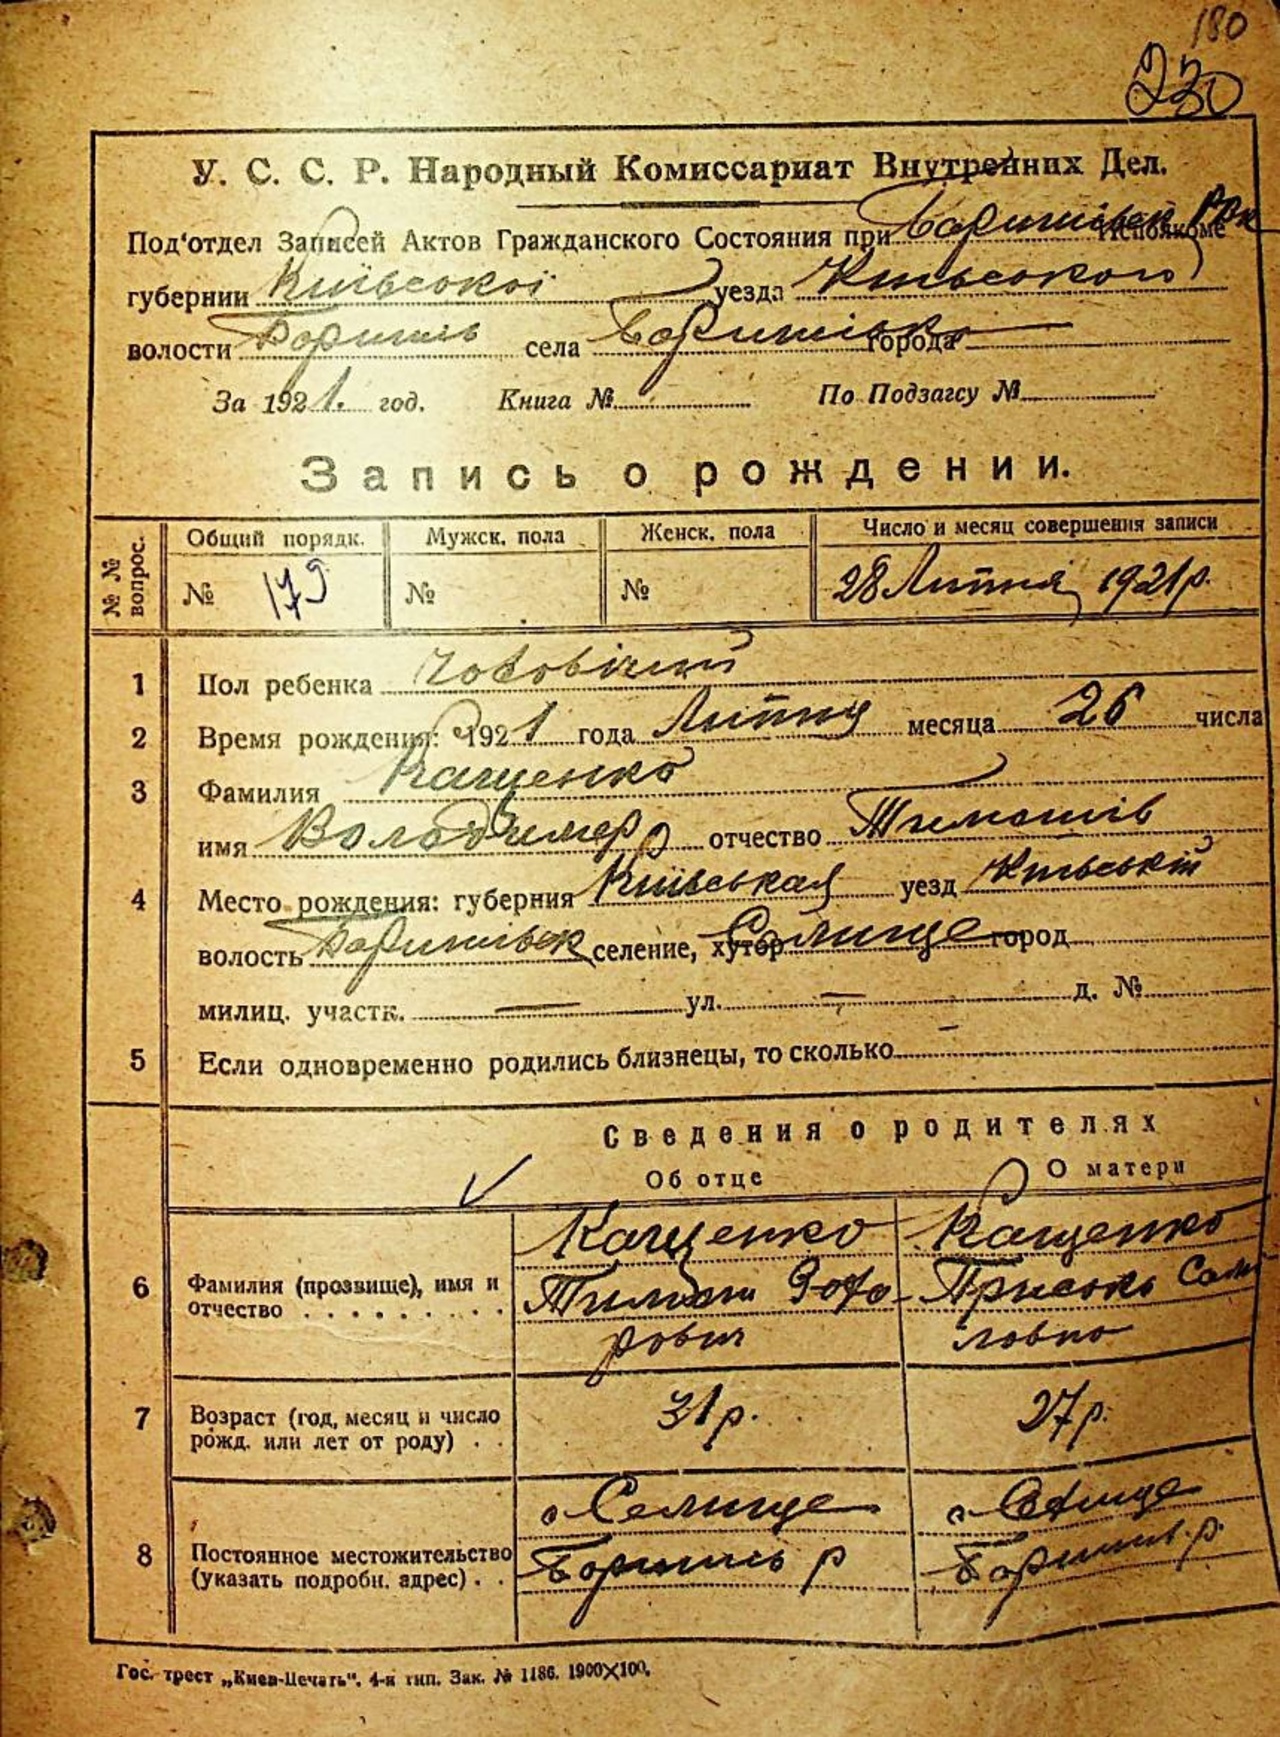 180
230
У. С. С. Р. Народный Комиссариат Внутренних Дел.
Под'отдел Записей Актов Гражданского Состояния при Баришівськ РВК Исполкоме
губернии Київської уезда Київського
волости Бориш села Баришівка города
За 1921. год. Книга № По Подзагсу №
Запись о рождении.
№ № вопрос. Общий порядк. Мужск. пола Женск. пола Число и месяц совершения записи
№ 179 № № 28 Липня 1921 р.
1 Пол ребенка Чоловічий
2 Время рождения: 1921 года Липня месяца 26 числа
3 Фамилия Кащенко
имя Володимер отчество Тимошів
4 Место рождения: губерния Київськая уезд Київський
волость Баришівськ селение, хутор Селище город
милиц. участк. — ул. — д. №
5 Если одновременно родились близнецы, то сколько
Сведения о родителях
Об отце О матери
Кащенко Кащенко
6 Фамилия (прозвище), имя и отчество Тимош Приська
7 Возраст (год, месяц и число рожд. или лет от роду) 31 р. 27 р.
с Селище с Селище
8 Постоянное местожительство (указать подробн. адрес) р р.
Гос. трест „Киев-Печать". 4-я тип. Зак. № 1186. 1900×100.